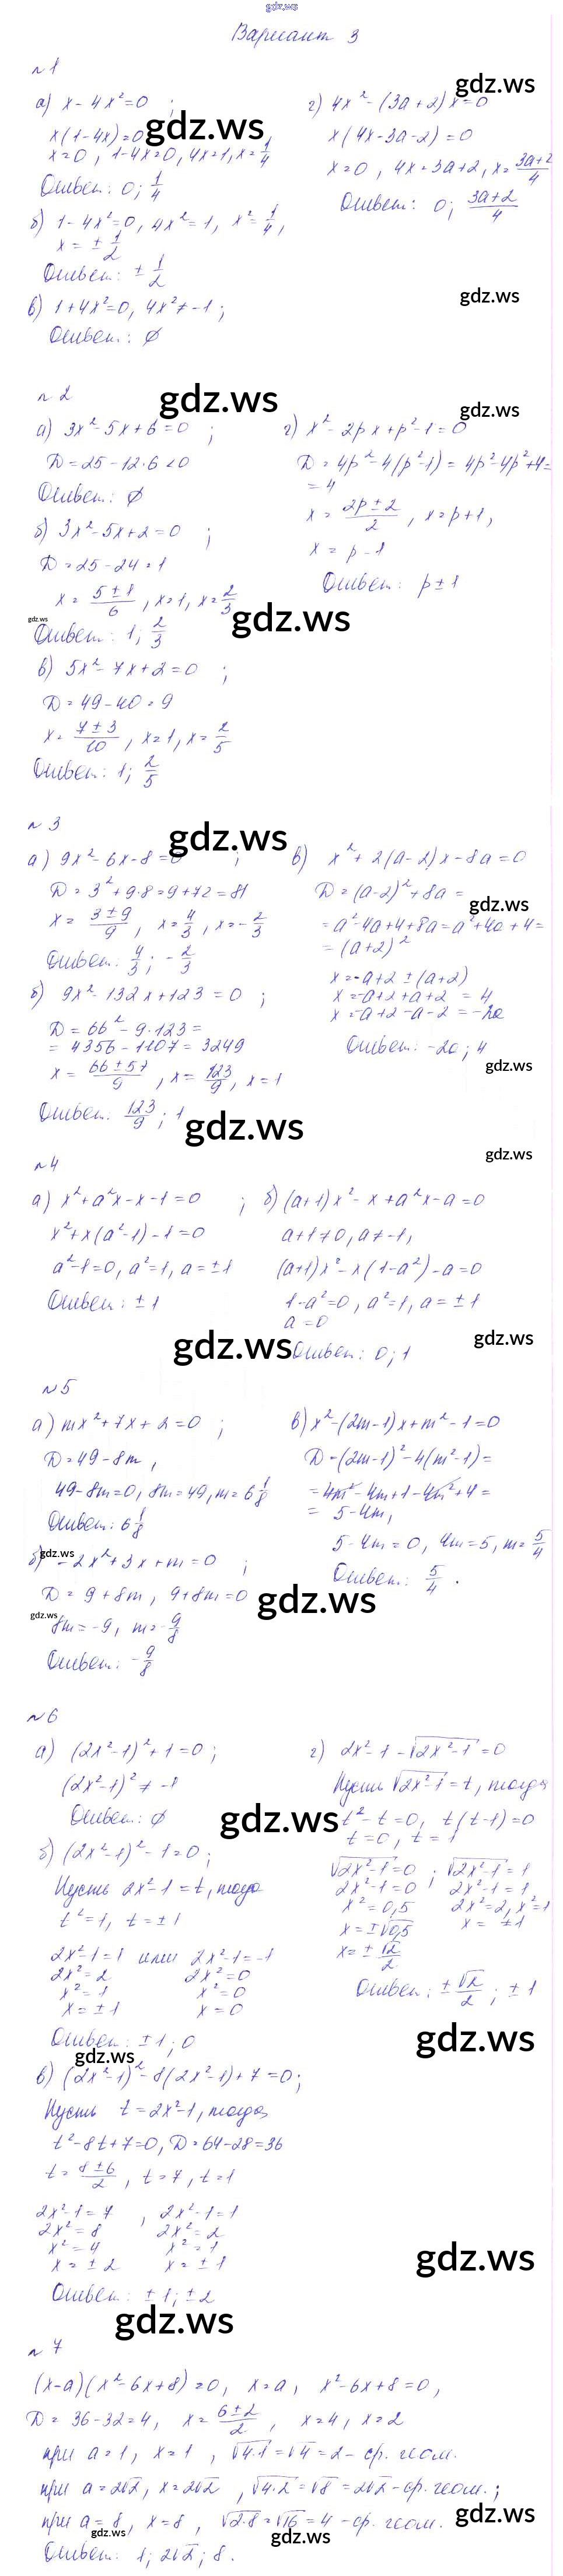 gdz.ws
Вариант 3
№1
а) x - 4x² = 0 ;
x(1-4x) = 0
x = 0 , 1-4x = 0, 4x = 1, x = 1/4
Ответ: 0; 1/4
б) 1 - 4x² = 0, 4x² = 1, x² = 1/4,
x = ± 1/2
Ответ: ± 1/2
в) 1 + 4x² = 0, 4x² ≠ -1 ;
Ответ: ∅
г) 4x² - (3a+2)x = 0
x(4x - 3a - 2) = 0
x = 0 , 4x = 3a+2, x = (3a+2)/4
Ответ: 0; (3a+2)/4
gdz.ws
gdz.ws
gdz.ws
№2
gdz.ws
gdz.ws
а) 3x² - 5x + 6 = 0 ;
D = 25 - 12·6 < 0
Ответ: ∅
б) 3x² - 5x + 2 = 0 ;
D = 25 - 24 = 1
x = (5 ± 1)/6 , x = 1, x = 2/3
Ответ: 1; 2/3
в) 5x² - 7x + 2 = 0 ;
D = 49 - 40 = 9
x = (7 ± 3)/10 , x = 1, x = 2/5
Ответ: 1; 2/5
г) x² - 2px + p² - 1 = 0
D = 4p² - 4(p² - 1) = 4p² - 4p² + 4 =
= 4
x = (2p ± 2)/2 , x = p + 1,
x = p - 1
Ответ: p ± 1
gdz.ws
gdz.ws
№3
gdz.ws
а) 9x² - 6x - 8 = 0 ;
D = 3² + 9·8 = 9 + 72 = 81
x = (3 ± 9)/9 , x = 4/3 , x = - 2/3
Ответ: 4/3 ; - 2/3
б) 9x² - 132x + 123 = 0 ;
D = 66² - 9·123 =
= 4356 - 1107 = 3249
x = (66 ± 57)/9 , x = 123/9 , x = 1
Ответ: 123/9 ; 1
в) x² + 2(a-2)x - 8a = 0
D = (a-2)² + 8a =
= a² - 4a + 4 + 8a = a² + 4a + 4 =
= (a+2)²
x = -a+2 ± (a+2)
x = -a+2+a+2 = 4
x = -a+2-a-2 = -2a
Ответ: -2a ; 4
gdz.ws
gdz.ws
gdz.ws
gdz.ws
№4
а) x² + a²x - x - 1 = 0 ;
x² + x(a² - 1) - 1 = 0
a² - 1 = 0, a² = 1, a = ± 1
Ответ: ± 1
б) (a+1)x² - x + a²x - a = 0
a + 1 ≠ 0, a ≠ -1,
(a+1)x² - x(1-a²) - a = 0
1 - a² = 0 , a² = 1, a = ± 1
a = 0
Ответ: 0; 1
gdz.ws
gdz.ws
№5
а) mx² + 7x + 2 = 0 ;
D = 49 - 8m ,
49 - 8m = 0, 8m = 49, m = 6 1/8
Ответ: 6 1/8
б) -2x² + 3x + m = 0 ;
D = 9 + 8m , 9 + 8m = 0
8m = -9, m = - 9/8
Ответ: - 9/8
в) x² - (2m-1)x + m² - 1 = 0
D = (2m-1)² - 4(m²-1) =
= 4m² - 4m + 1 - 4m² + 4 =
= 5 - 4m,
5 - 4m = 0, 4m = 5, m = 5/4
Ответ: 5/4 .
gdz.ws
gdz.ws
gdz.ws
№6
а) (2x²-1)² + 1 = 0 ;
(2x²-1)² ≠ -1
Ответ: ∅
б) (2x²-1)² - 1 = 0 ;
Пусть 2x²-1 = t, тогда
t² = 1, t = ± 1
2x²-1 = 1 или 2x²-1 = -1
2x² = 2 2x² = 0
x² = 1 x² = 0
x = ± 1 x = 0
Ответ: ± 1 ; 0
в) (2x²-1)² - 8(2x²-1) + 7 = 0 ;
Пусть t = 2x²-1, тогда
t² - 8t + 7 = 0, D = 64 - 28 = 36
t = (8 ± 6)/2 , t = 7 , t = 1
2x²-1 = 7 , 2x²-1 = 1
2x² = 8 2x² = 2
x² = 4 x² = 1
x = ± 2 x = ± 1
Ответ: ± 1 ; ± 2
г) 2x² - 1 - √(2x²-1) = 0
Пусть √(2x²-1) = t, тогда
t² - t = 0, t(t-1) = 0
t = 0 , t = 1
√(2x²-1) = 0 ; √(2x²-1) = 1
2x²-1 = 0 2x²-1 = 1
x² = 0,5 2x² = 2, x² = 1
x = ±√0,5 x = ± 1
x = ± √2/2
Ответ: ± √2/2 ; ± 1
gdz.ws
gdz.ws
gdz.ws
gdz.ws
gdz.ws
№7
(x-a)(x² - 6x + 8) = 0, x = a , x² - 6x + 8 = 0,
D = 36 - 32 = 4, x = (6 ± 2)/2 , x = 4, x = 2
при a = 1, x = 1 , √(4·1) = √4 = 2 - ср. геом.
при a = 2√2, x = 2√2 , √(4·2) = √8 = 2√2 - ср. геом. ;
при a = 8, x = 8, √(2·8) = √16 = 4 - ср. геом.
Ответ: 1; 2√2 ; 8 .
gdz.ws
gdz.ws
gdz.ws